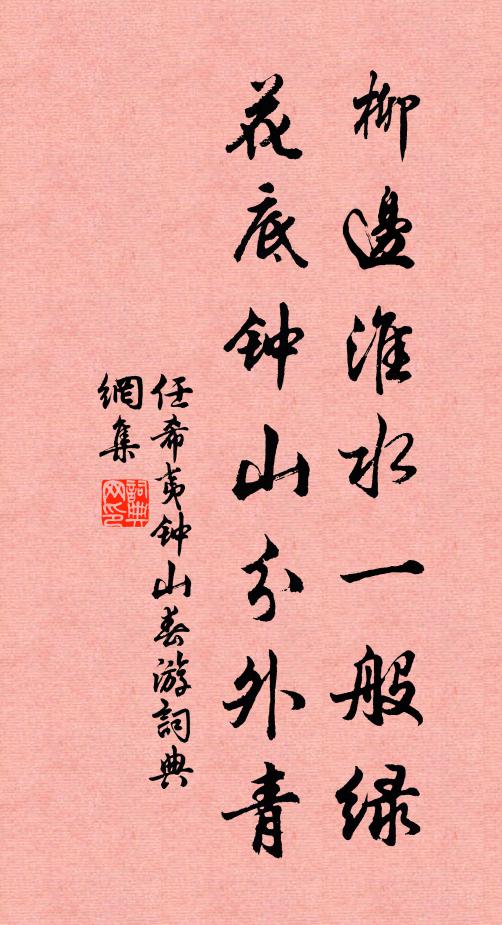 柳邊淮水一般绿
花底钟山分外青
任希夷钟山春游詞典
網集
詞典
网印